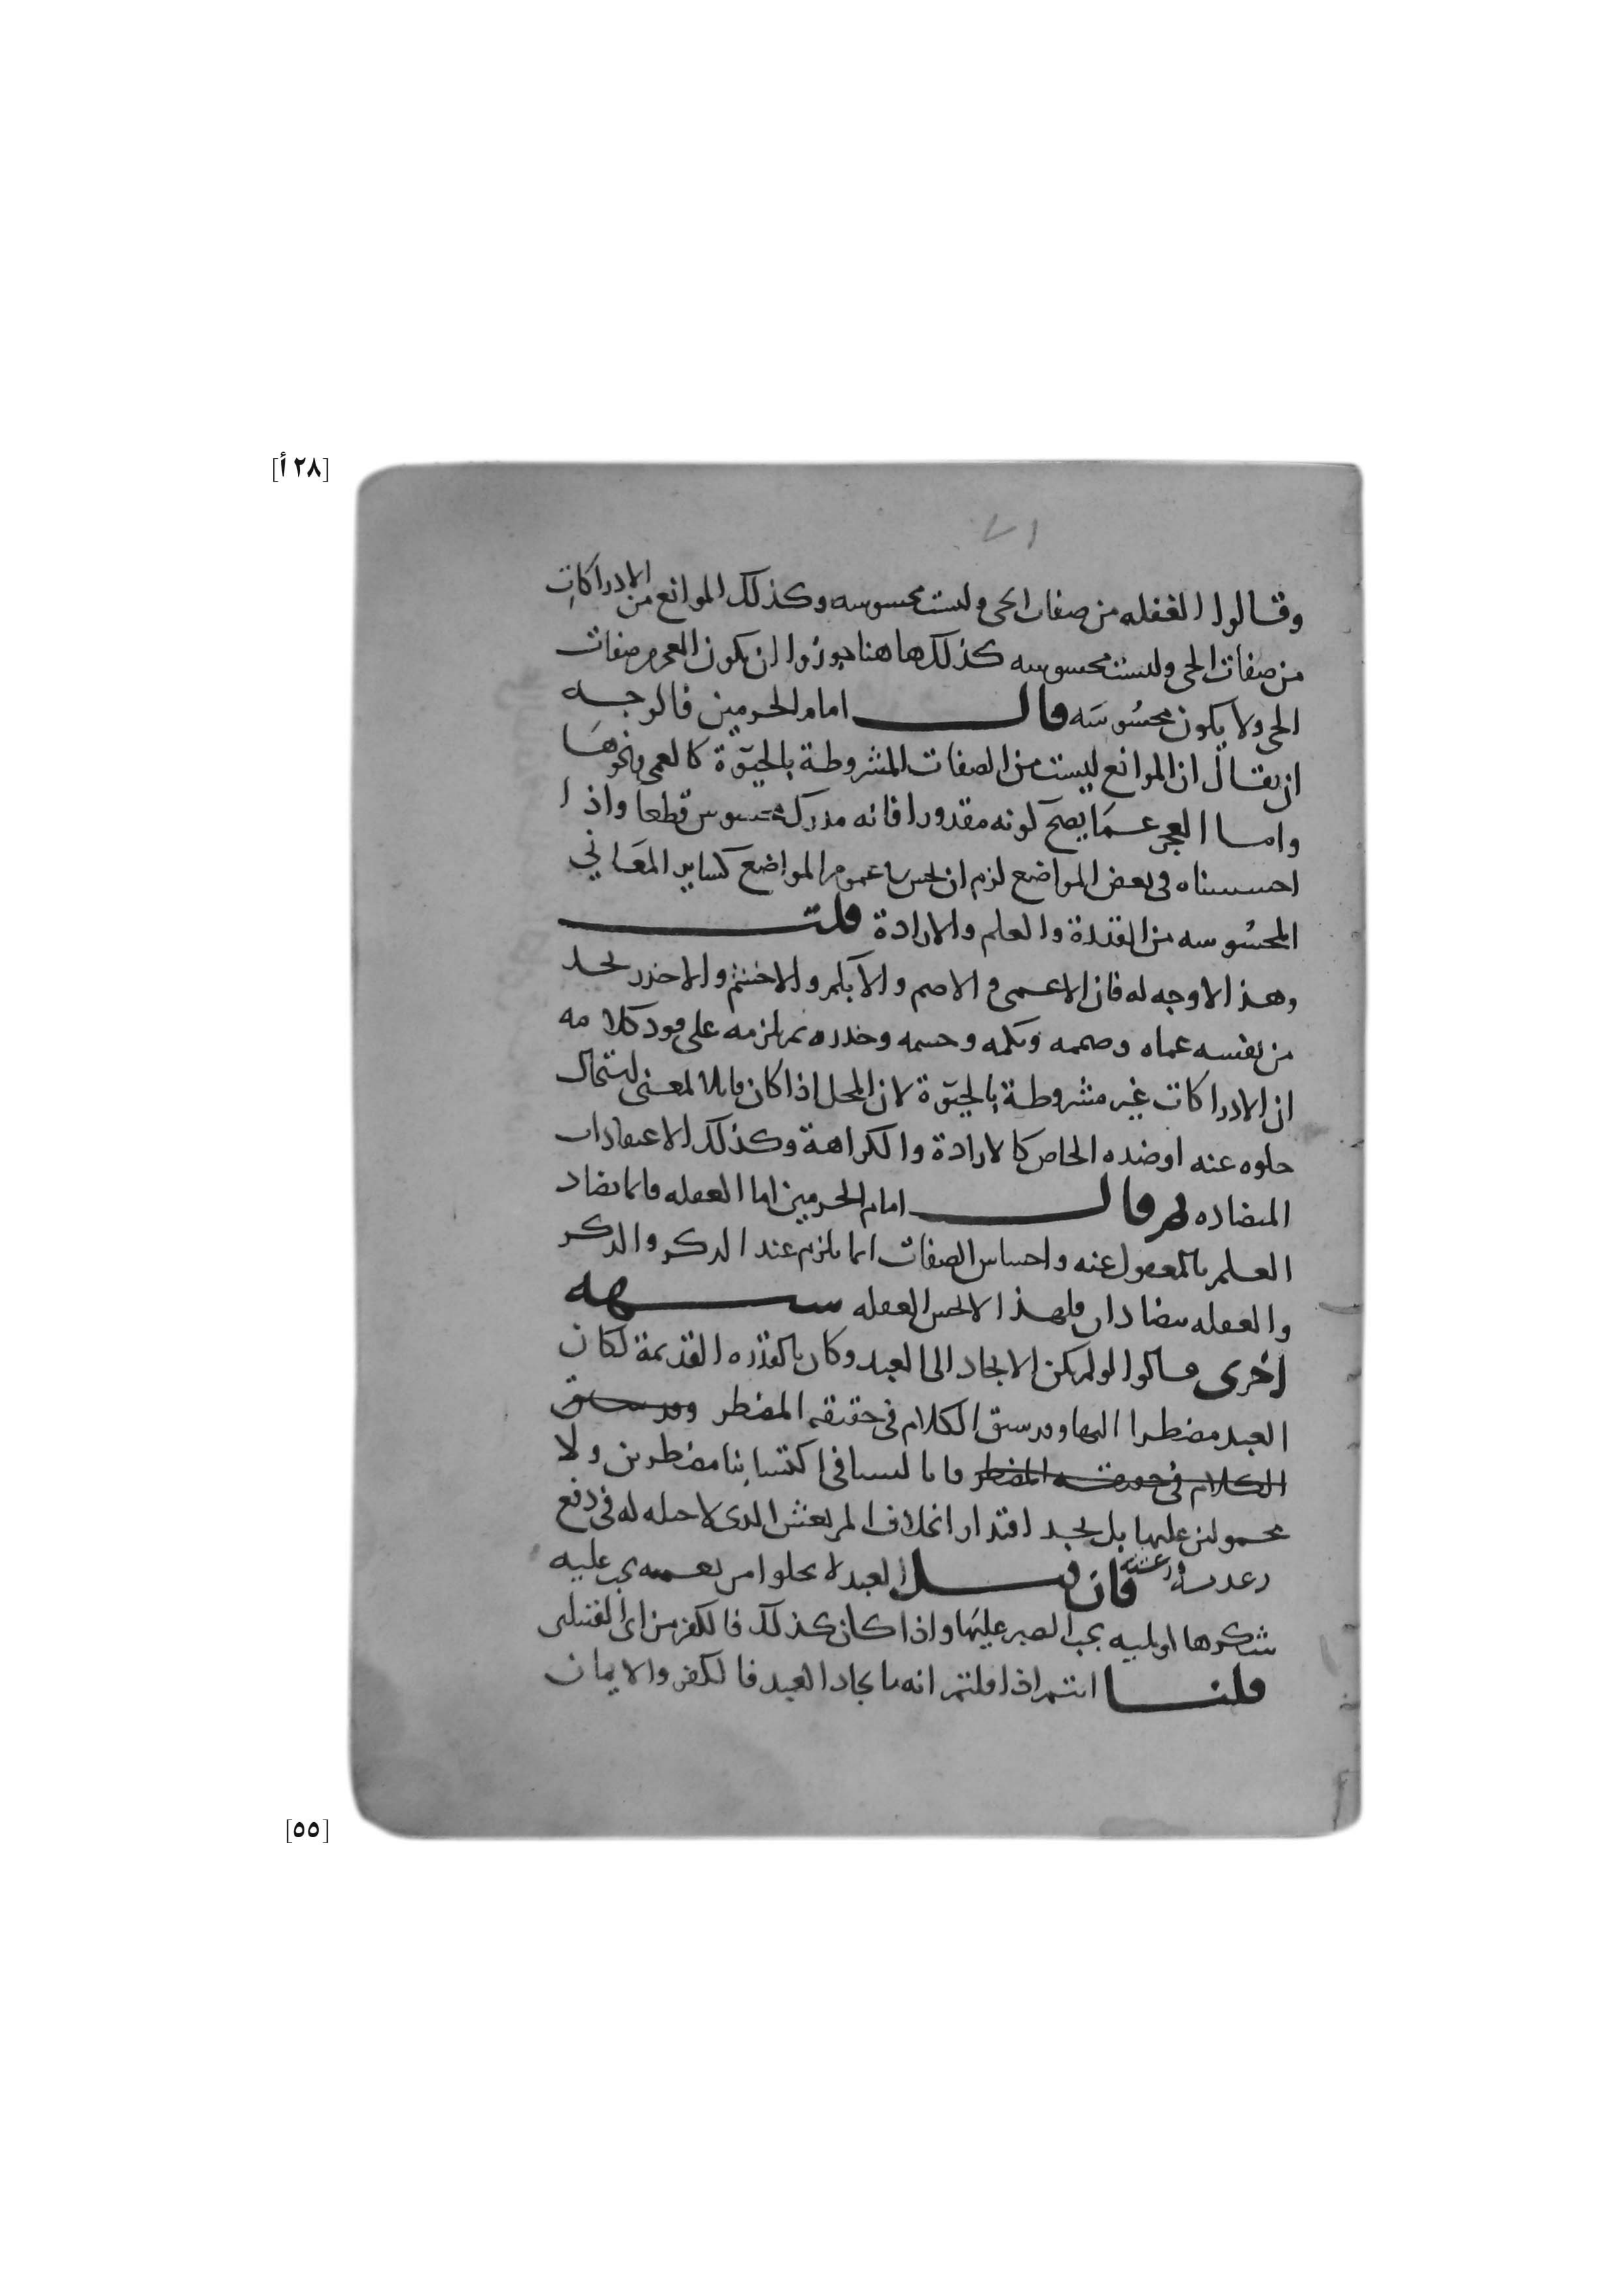 [٢٨ أ]
٧١
وقالوا الغفله من صفات الحي وليست محسوسه وكذلك الموانع من الادراكات
من صفات الحي وليست محسوسه كذلك هاهنا جوزوا ان يكون العجز من صفات
الحي ولا يكون محسوسه قال امام الحرمين فالوجه
ان يقال ان الموانع ليست من الصفات المشروطة بالحيوة كالعمى ونحوها
واما العجز عما يصح كونه مقدورا فانه مدرك محسوس قطعا واذا
احسسناه في بعض المواضع لزم ان يحس عموم المواضع كساير المعاني
المحسوسه من القدرة والعلم والارادة قلت
وهذا لاوجه له فان الاعمى والاصم والابكم والاخشم والاخدر يجد
من نفسه عماه وصممه وبكمه وخشمه وخدره ثم يلزمه على قود كلامه
ان الادراكات غير مشروطة بالحيوة لان المحل اذا كان قابلا لمعنى استحال
خلوه عنه او ضده الخاص كالارادة والكراهة وكذلك الاعتقادات
المتضاده ثم قال امام الحرمين اما الغفله فانما تضاد
العلم بالمغفول عنه واحساس الصفات انما يلزم عند الذكر والذكر
والغفله متضادان فلهذا لا تحس الغفله شبهه
اخرى قالوا لو لم يكن الايجاد الى العبد وكان بالقدره القديمة لكان
العبد مضطرا اليها وقد سبق الكلام في حقيقه المضطر وقد سبق
الكلام في حقيقه المضطر فانا لسنا في اكتسابنا مضطرين ولا
محمولين عليها بل نجد اقتدارا بخلاف المرتعش الذي لا حيله له في دفع
رعدته ورعشته فان قيل العبد لا يخلوا من نعمه يجب عليه
شكرها او بليه يجب الصبر عليها واذا كان كذلك فالكفر من اي القبيلين
قلنا انتم اذا قلتم انه بايجاد العبد فالكفر والايمان
[٥٥]